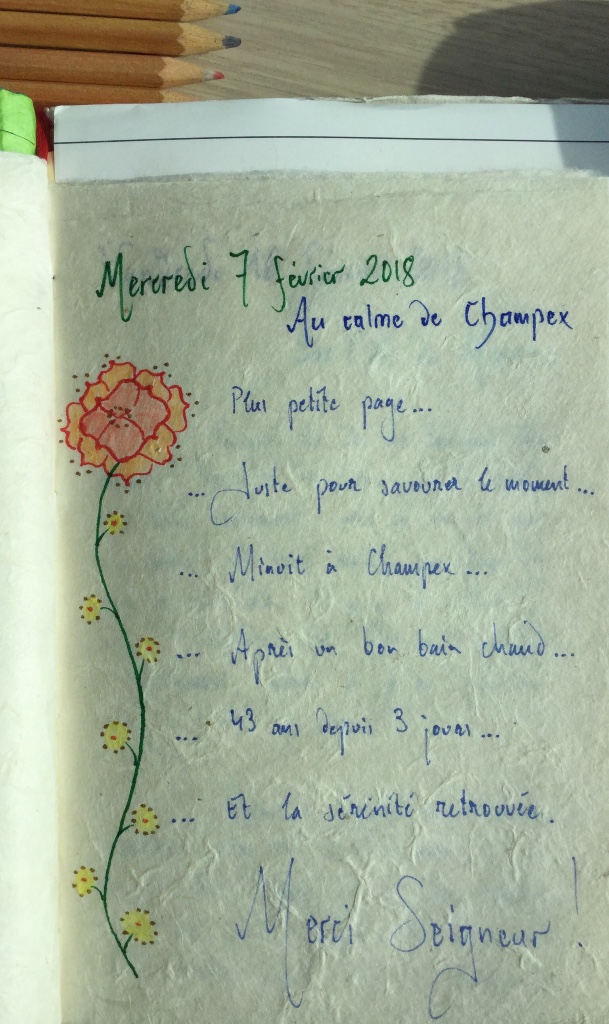 Mercredi 7 février 2018
Au calme de Champex
Plus petite page...
... Juste pour savourer le moment...
... Minuit à Champex...
... Après un bon bain chaud...
... 43 ans depuis 3 jours...
... Et la sérénité retrouvée.
Merci Seigneur !